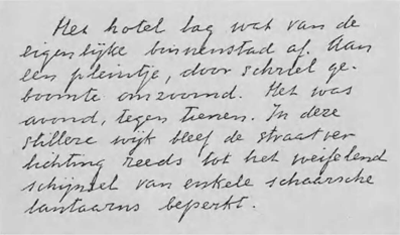 Het hotel lag wat van de
eigenlijke binnenstad af. Aan
een pleintje, door schriel ge-
boomte omzoomd. Het was
avond, tegen tienen. In deze
stillere wijk bleef de straatver
lichting reeds tot het weifelend
schijnsel van enkele schaarsche
lantaarns beperkt.